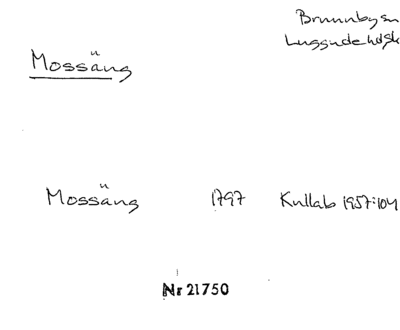 Brunnby sn
Luggude hd Sk
Mossäng
Mossäng 1797 Kullab 1957:104
Nr 21750